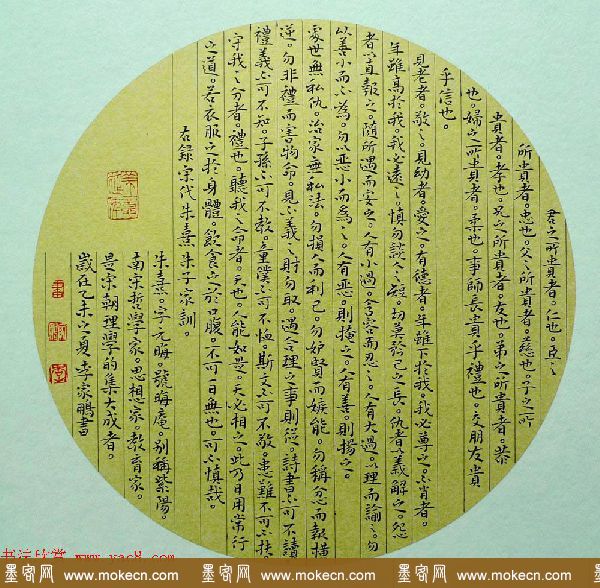 君之所貴者。仁也。臣之
所貴者。忠也。父之所貴者。慈也。子之所
貴者。孝也。兄之所貴者。友也。弟之所貴者。恭
也。婦之所貴者。柔也。事師長貴乎禮也。交朋友貴
乎信也。
見老者。敬之。見幼者。愛之。有德者。年雖下於我。我必尊之。不肖者。
年雖高於我。我必遠之。慎勿談人之短。切莫矜己之長。仇者以義解之。怨
者以直報之。隨所遇而安之。人有小過。含容而忍之。人有大過。以理而諭之。勿
以善小而不為。勿以惡小而為之。人有惡。則掩之。人有善。則揚之。
處世無私仇。治家無私法。勿損人而利己。勿妒賢而嫉能。勿稱忿而報橫
逆。勿非禮而害物命。見不義之財勿取。遇合理之事則從。詩書不可不讀
禮義不可不知。子孫不可不教。童僕不可不恤。斯文不可不敬。患難不可不扶。
守我之分者。禮也。聽我之命者。天也。人能如是。天必相之。此乃日用常行
之道。若衣服之於身體。飲食之於口腹。不可一日無也。可不慎哉。
右錄宋代朱熹朱子家訓。
朱熹。字元晦。號晦庵。別稱紫陽。
南宋哲學家。思想家。教育家。
是宋朝理學的集大成者。
歲在乙未之夏李家鵬書
书法欣赏 www.yac8.com
墨客网 www.mokecn.com 墨客网 www.mokecn.com 墨客网 www.mokecn.com